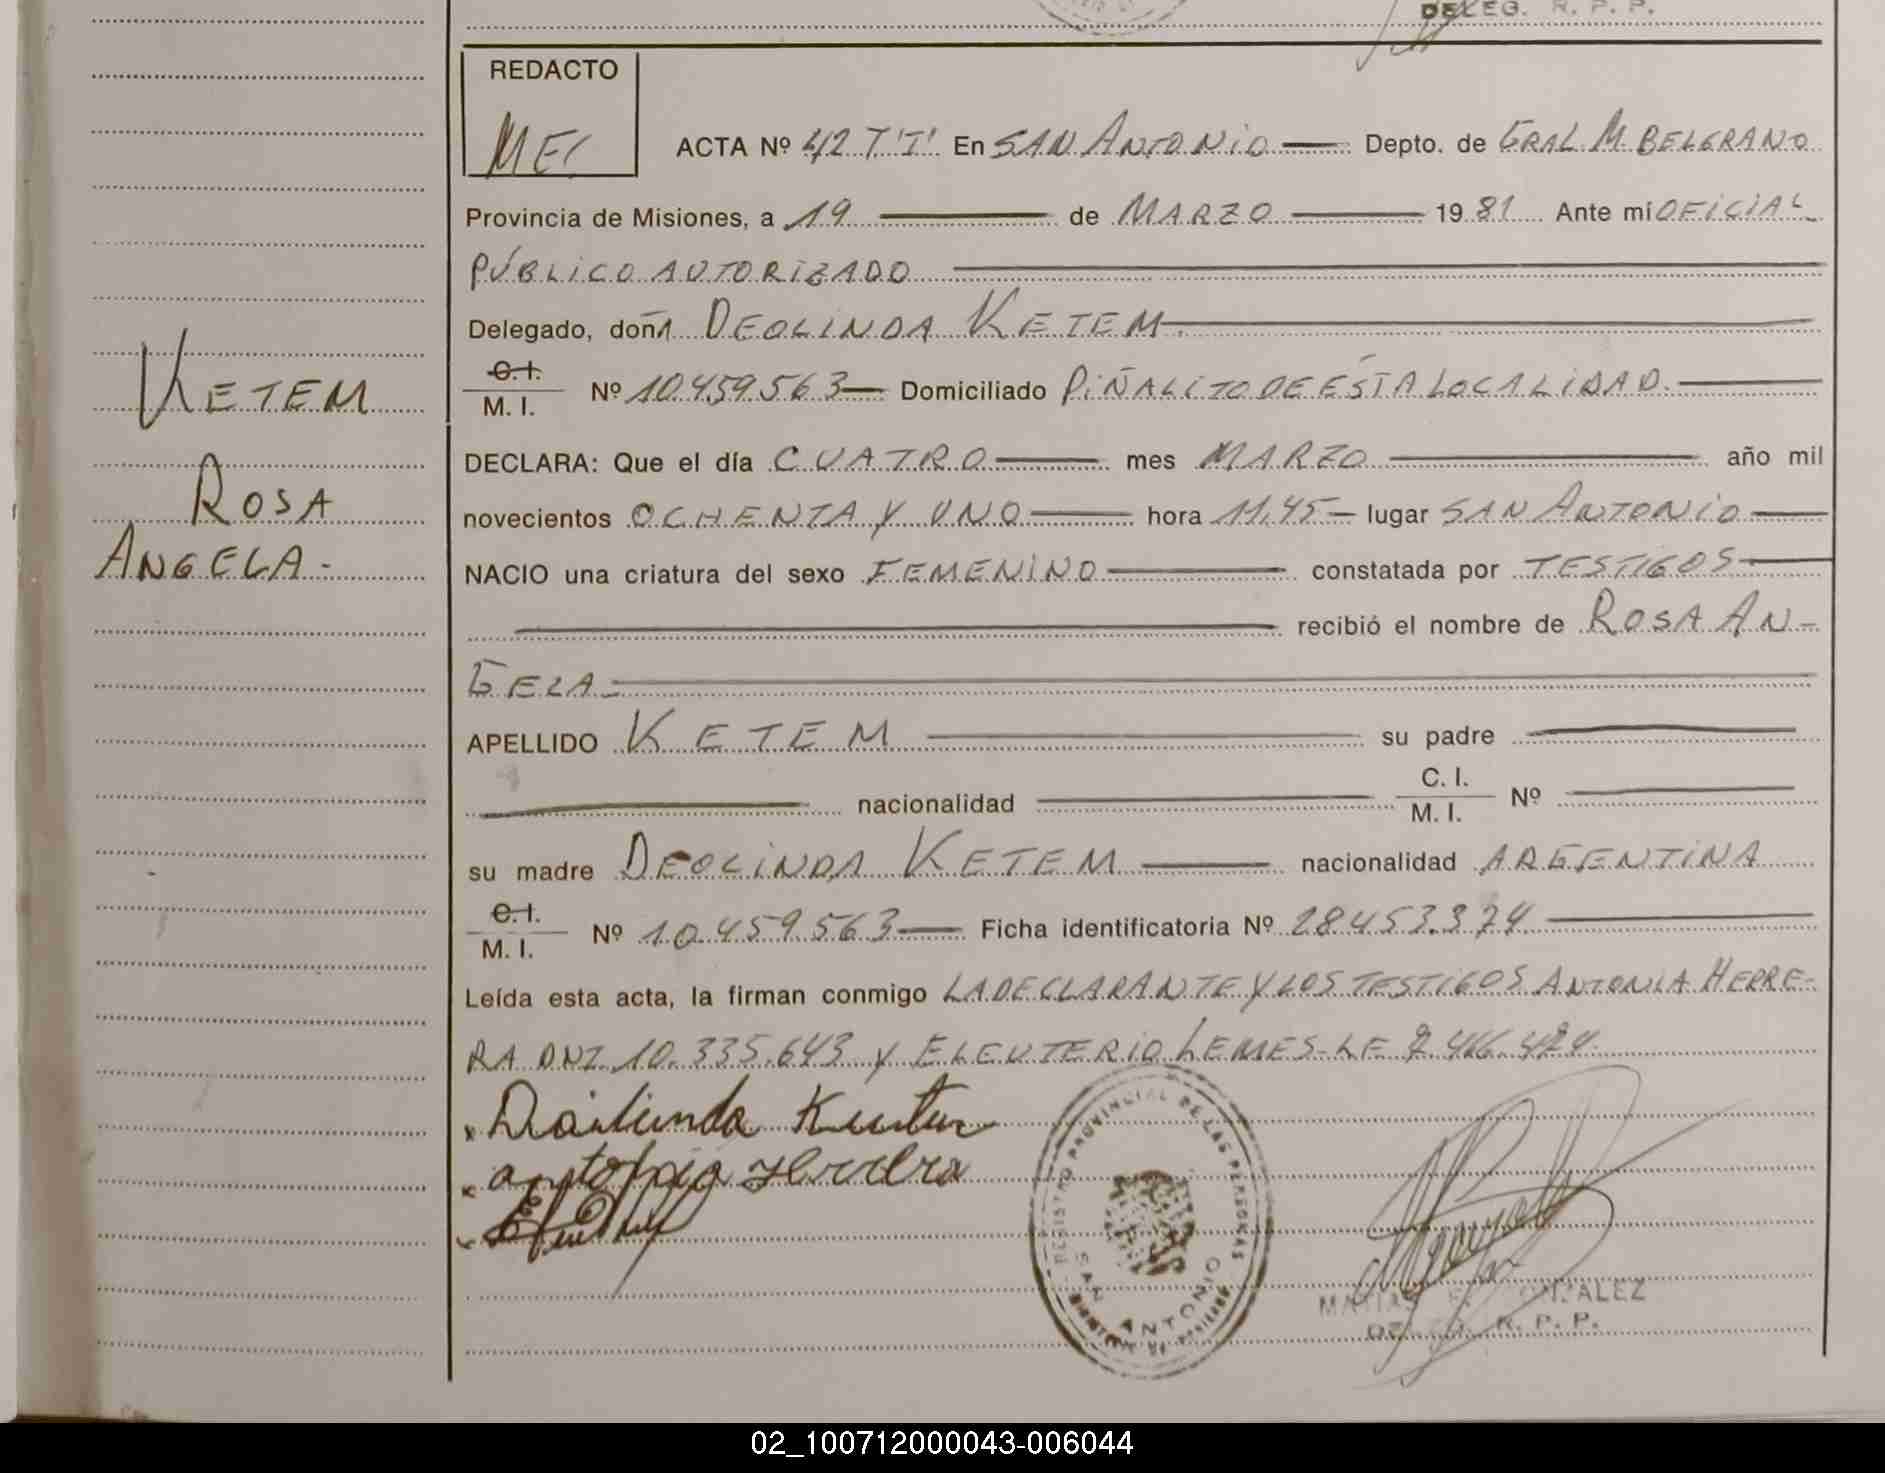 DELEG. R. P. P.
REDACTO
MEC
ACTA Nº 42 T'I' En SAN ANTONIO Depto. de GRAL M. BELGRANO
Provincia de Misiones, a 19 de MARZO 1981 Ante mi OFICIAL
PÚBLICO AUTORIZADO
Delegado, doña DEOLINDA KETEM.
C. I.
M. I. Nº 10.459.563 Domiciliado PIÑALITO DE ÉSTA LOCALIDAD.
KETEM
ROSA
ANGELA.-
DECLARA: Que el día CUATRO mes MARZO año mil
novecientos OCHENTA Y UNO hora 11,45 lugar SAN ANTONIO
NACIO una criatura del sexo FEMENINO constatada por TESTIGOS
recibió el nombre de ROSA AN-
GELA.
APELLIDO KETEM su padre
nacionalidad C. I.
M. I. Nº
su madre DEOLINDA KETEM nacionalidad ARGENTINA
C. I.
M. I. Nº 10.459.563 Ficha identificatoria Nº 28.453.374
Leída esta acta, la firman conmigo LA DECLARANTE Y LOS TESTIGOS ANTONIA HERRE-
RA DNI. 10.335.643 Y ELEUTERIO LEMES-LE
antonia Herrera
REGISTRO PROVINCIAL DE LAS PERSONAS
SAN ANTONIO
MATIAS GONZALEZ
R. P. P.
02_100712000043-006044